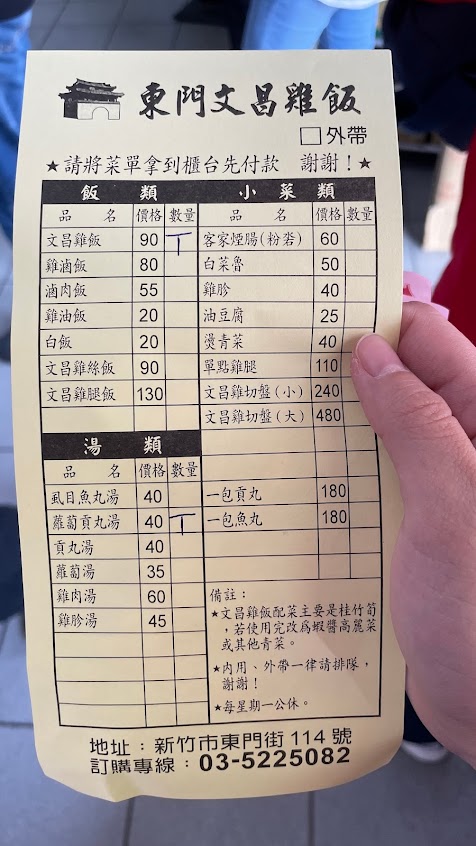 東門文昌雞飯
□外帶
★請將菜單拿到櫃台先付款 謝謝!★
飯類
品名 價格 數量
文昌雞飯 90 T
雞滷飯 80
滷肉飯 55
雞油飯 20
白飯 20
文昌雞絲飯 90
文昌雞腿飯 130
湯類
品名 價格 數量
虱目魚丸湯 40
蘿蔔貢丸湯 40 T
貢丸湯 40
蘿蔔湯 35
雞肉湯 60
雞胗湯 45
小菜類
品名 價格 數量
客家煙腸(粉沯) 60
白菜魯 50
雞胗 40
油豆腐 25
燙青菜 40
單點雞腿 110
文昌雞切盤(小) 240
文昌雞切盤(大) 480
一包貢丸 180
一包魚丸 180
備註:
★文昌雞飯配菜主要是桂竹筍
,若使用完改為蝦醬高麗菜
或其他青菜。
★內用、外帶一律請排隊,
謝謝!
★每星期一公休。
地址:新竹市東門街114號
訂購專線:03-5225082